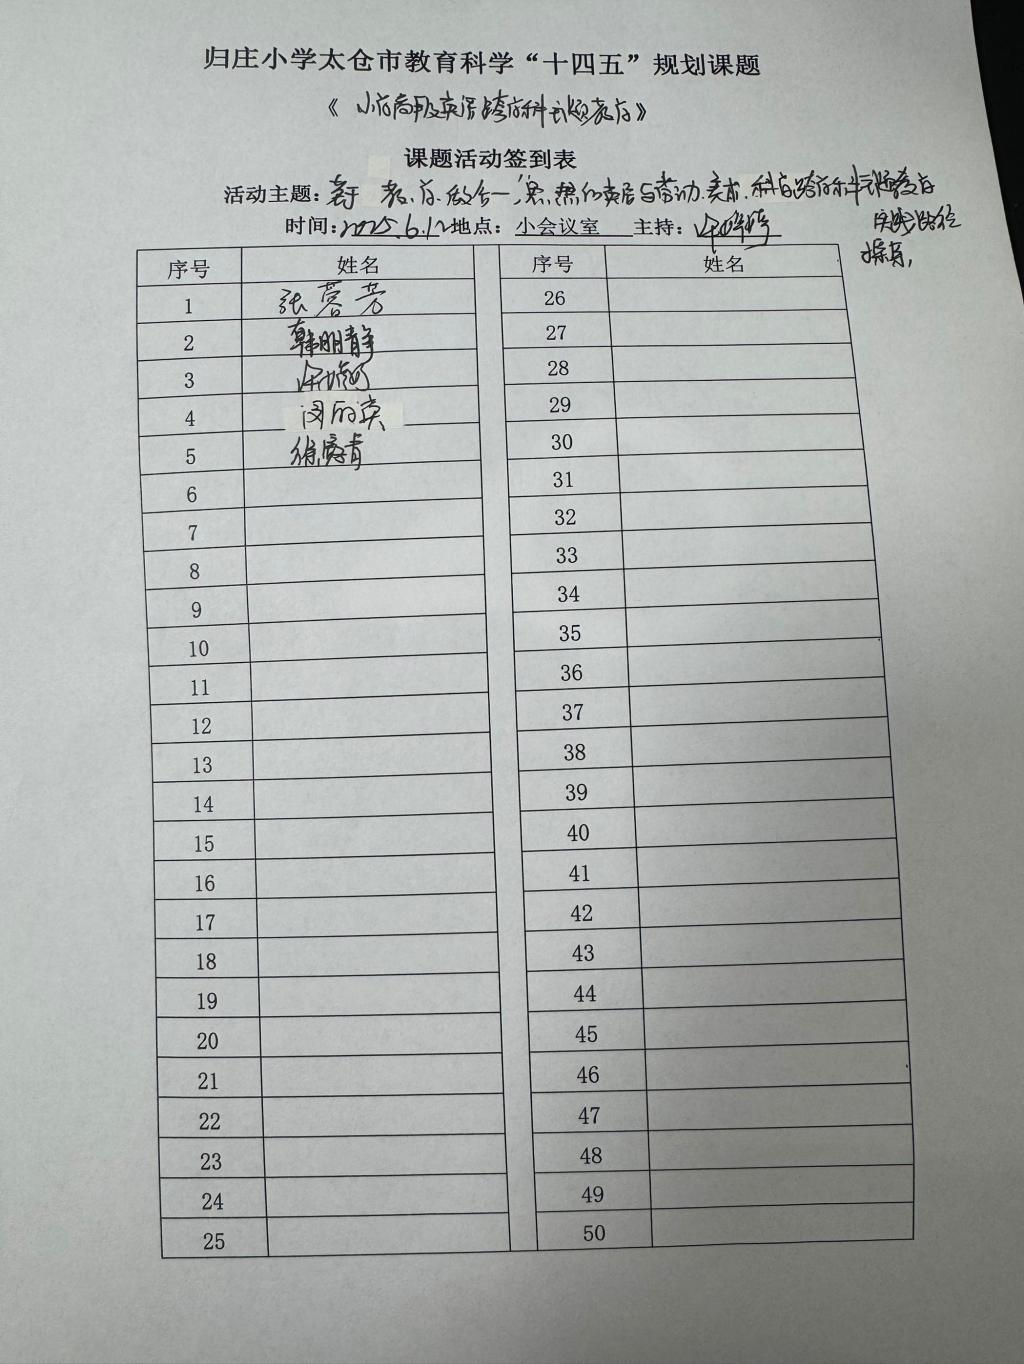 归庄小学太仓市教育科学“十四五”规划课题
《小学高年级英语跨学科主题教学》
课题活动签到表
活动主题：基于 教、学、做合一 的英语与劳动、美术、科学跨学科主题教学
实践路径
时间：2025.6.12 地点：小会议室 主持：
序号 姓名 序号 姓名
1 张蓉芳 26
2 韩明静 27
3 28
4 29
5 徐 青 30
6 31
7 32
8 33
9 34
10 35
11 36
12 37
13 38
14 39
15 40
16 41
17 42
18 43
19 44
20 45
21 46
22 47
23 48
24 49
25 50